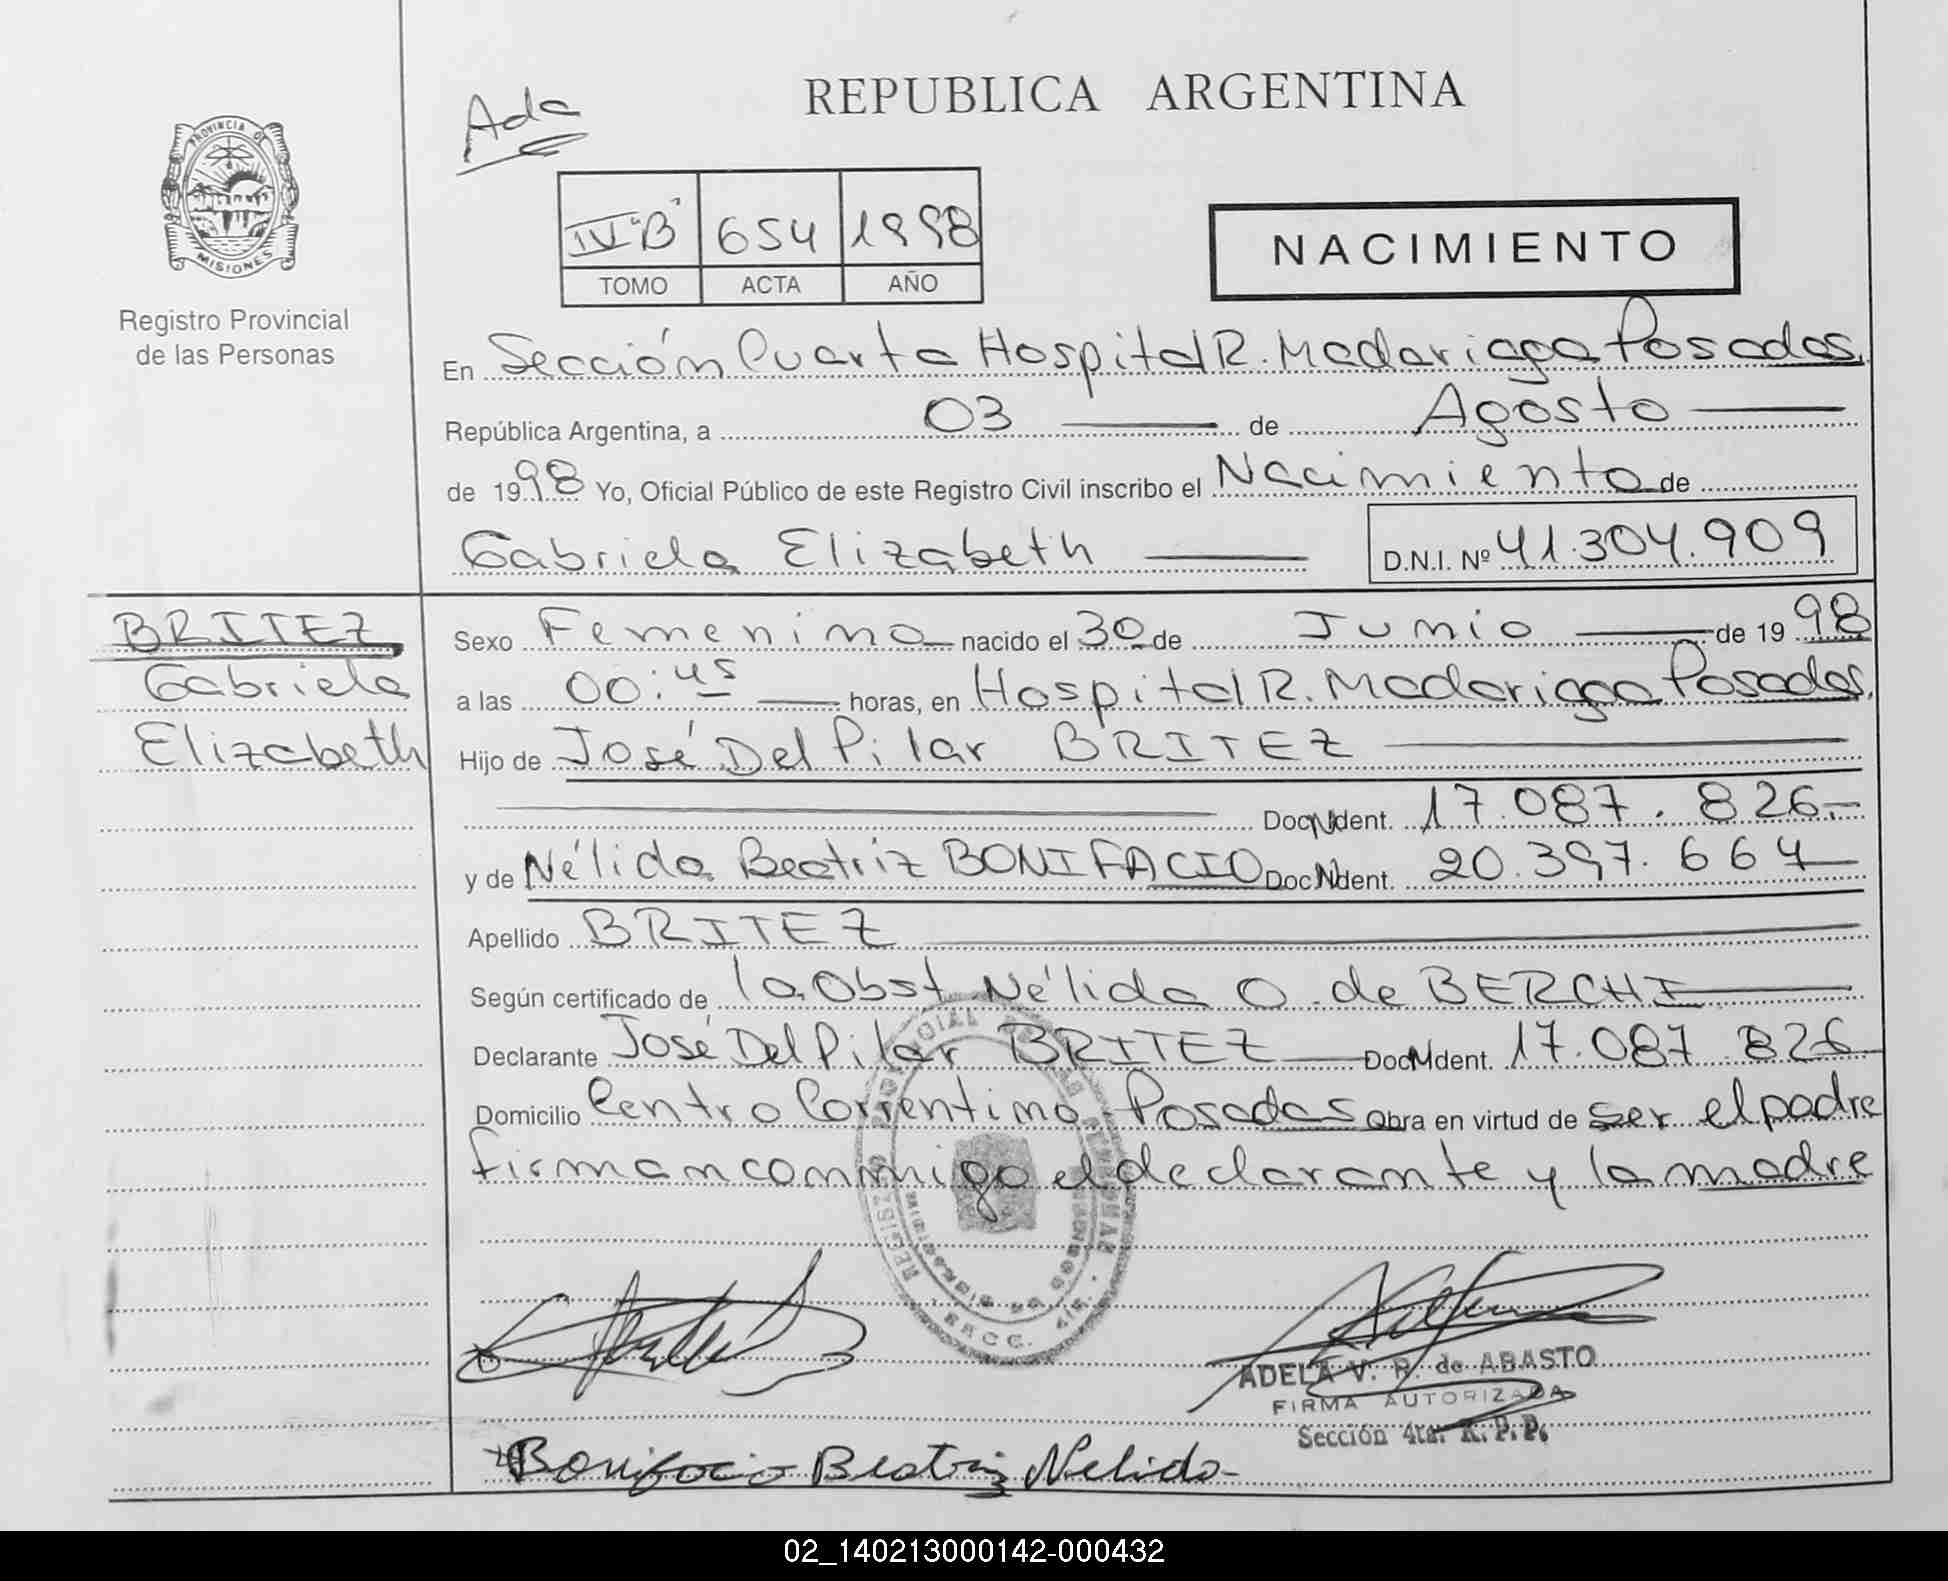 REPUBLICA ARGENTINA
Ada
PROVINCIA DE
MISIONES
Registro Provincial
de las Personas
IV "B" 654 1998
TOMO ACTA AÑO
NACIMIENTO
En Sección Cuarta Hospital R. Madariaga Posadas.
República Argentina, a 03 de Agosto
de 1998 Yo, Oficial Público de este Registro Civil inscribo el Nacimiento de
Gabriela Elizabeth D.N.I. Nº 41.304.909
BRITEZ
Gabriela
Elizabeth
Sexo Femenino nacido el 30 de Junio de 1998
a las 00:45 horas, en Hospital R. Madariaga Posadas.
Hijo de José Del Pilar BRITEZ
Doc. Ident. 17.087.826.-
y de Nélida Beatriz BONIFACIO Doc. Ident. 20.397.664
Apellido BRITEZ
Según certificado de la Obst Nélida O. de BERCHI
Declarante José Del Pilar BRITEZ Doc. Ident. 17.087.826
Domicilio Centro Correntino Posadas Obra en virtud de ser el padre
firman conmigo el declarante y la madre
ADELA V. R. de ABASTO
FIRMA AUTORIZADA
Sección 4ta. R. P. P.
Bonifacio Beatriz Nelida
02_140213000142-000432